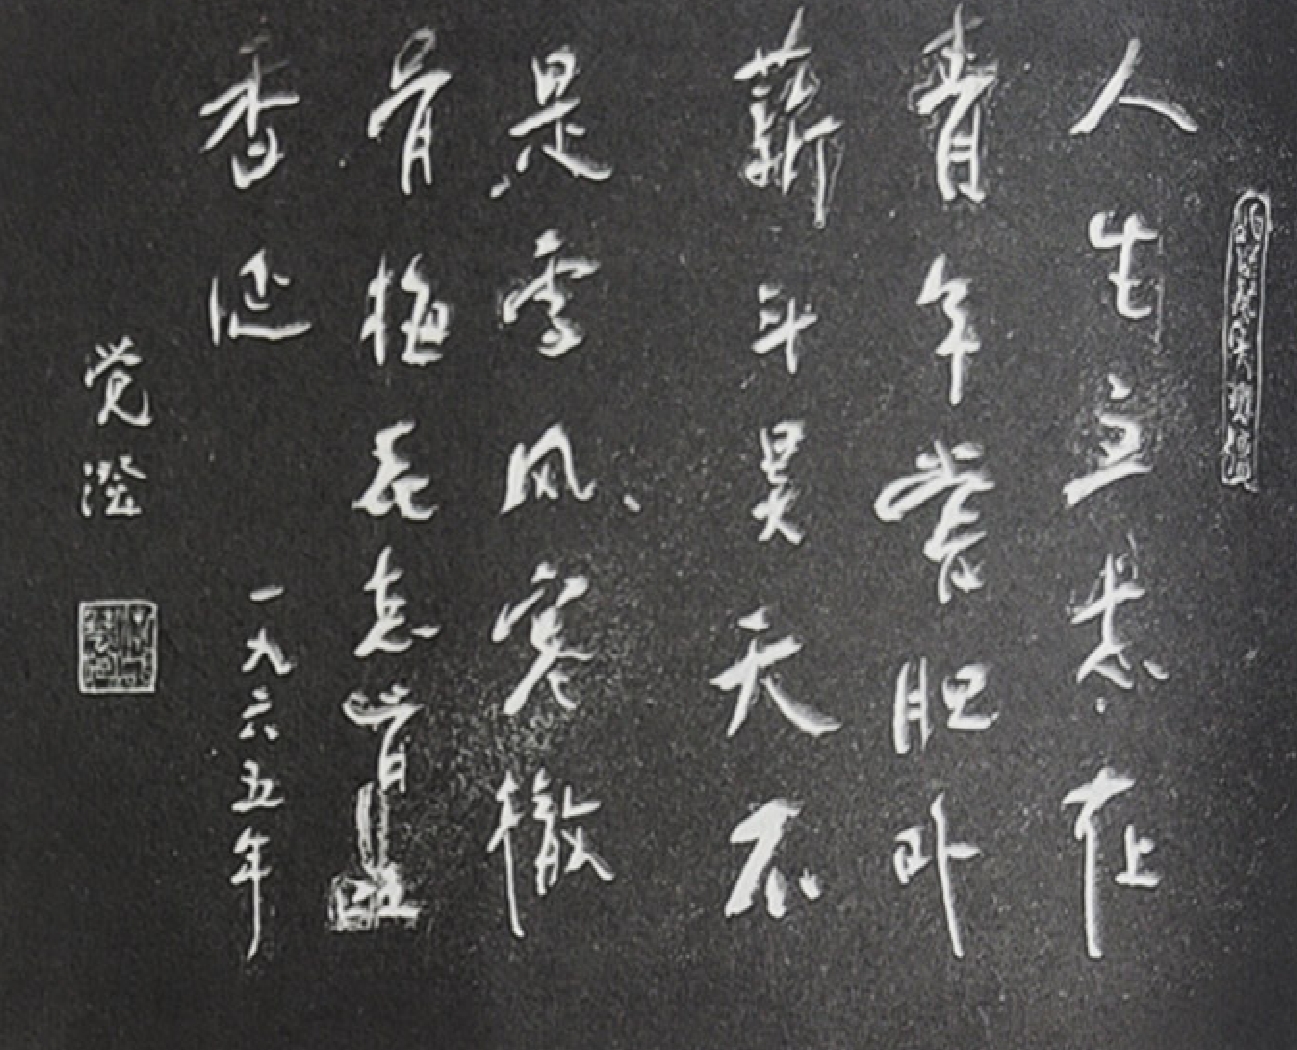 人生立志在
青年嘗胆卧
薪斗昊天不
是雪风寒徹
骨梅花怎肯
香
一九六五年
觉澄